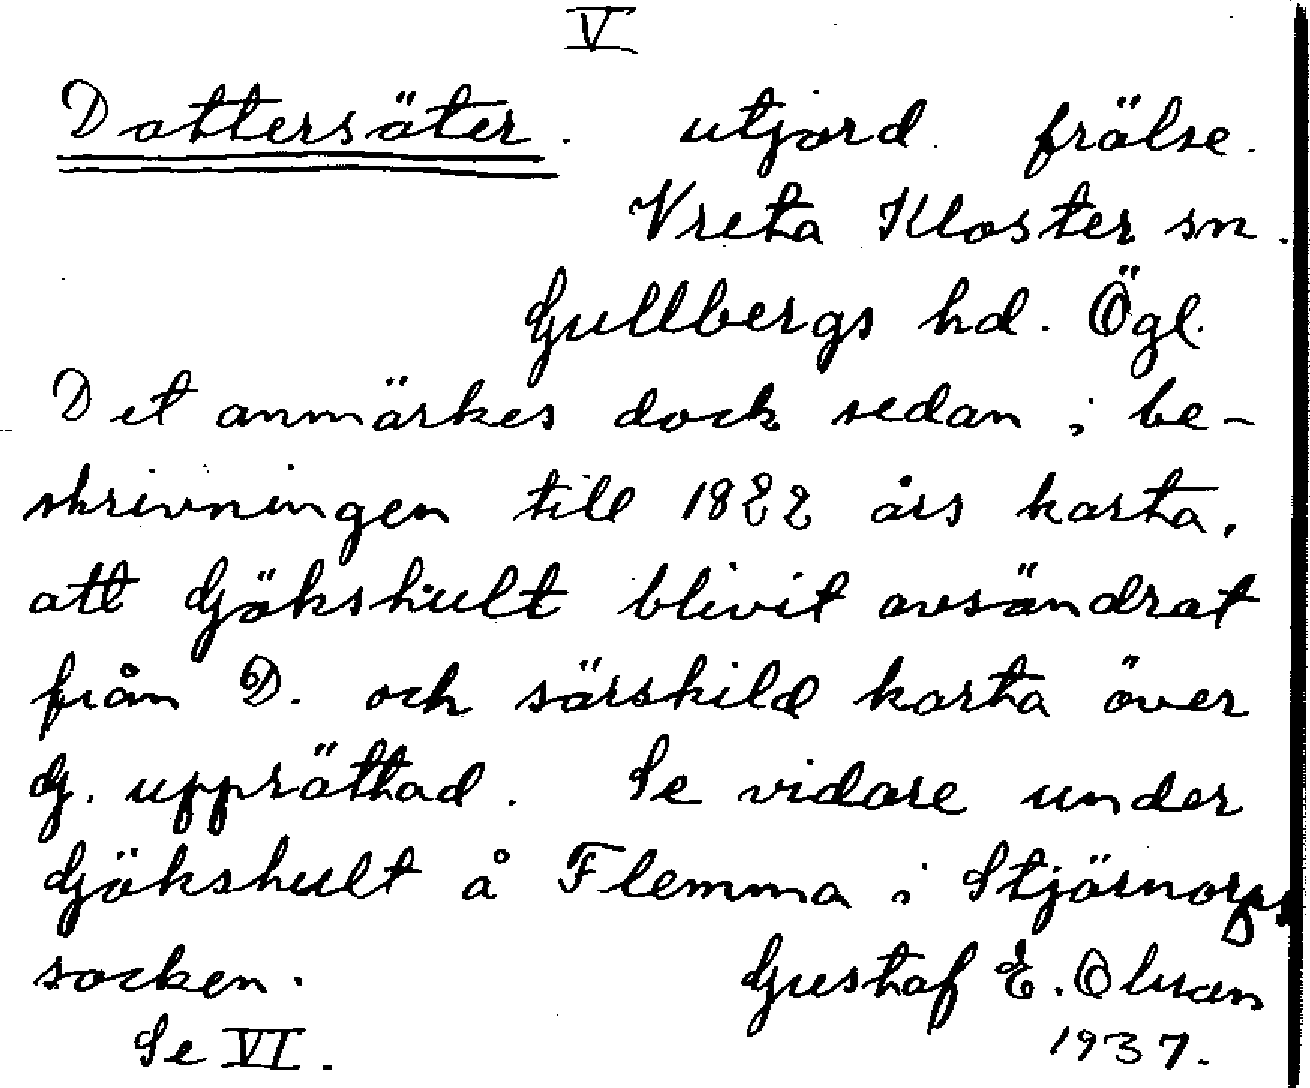 V
Dattersäter. utjord. frälse.
Vreta Kloster sn.
Gullbergs hd. Ögl.
Det anmärkes dock sedan i be-
skrivningen till 1822 års karta,
att Gökshult blivit avsöndrat
från D. och särskild karta över
G. upprättad. Se vidare under
Gökshult å Flemma i Stjärnorps
socken. Gustaf E. Olsson
Se VI. 1937.